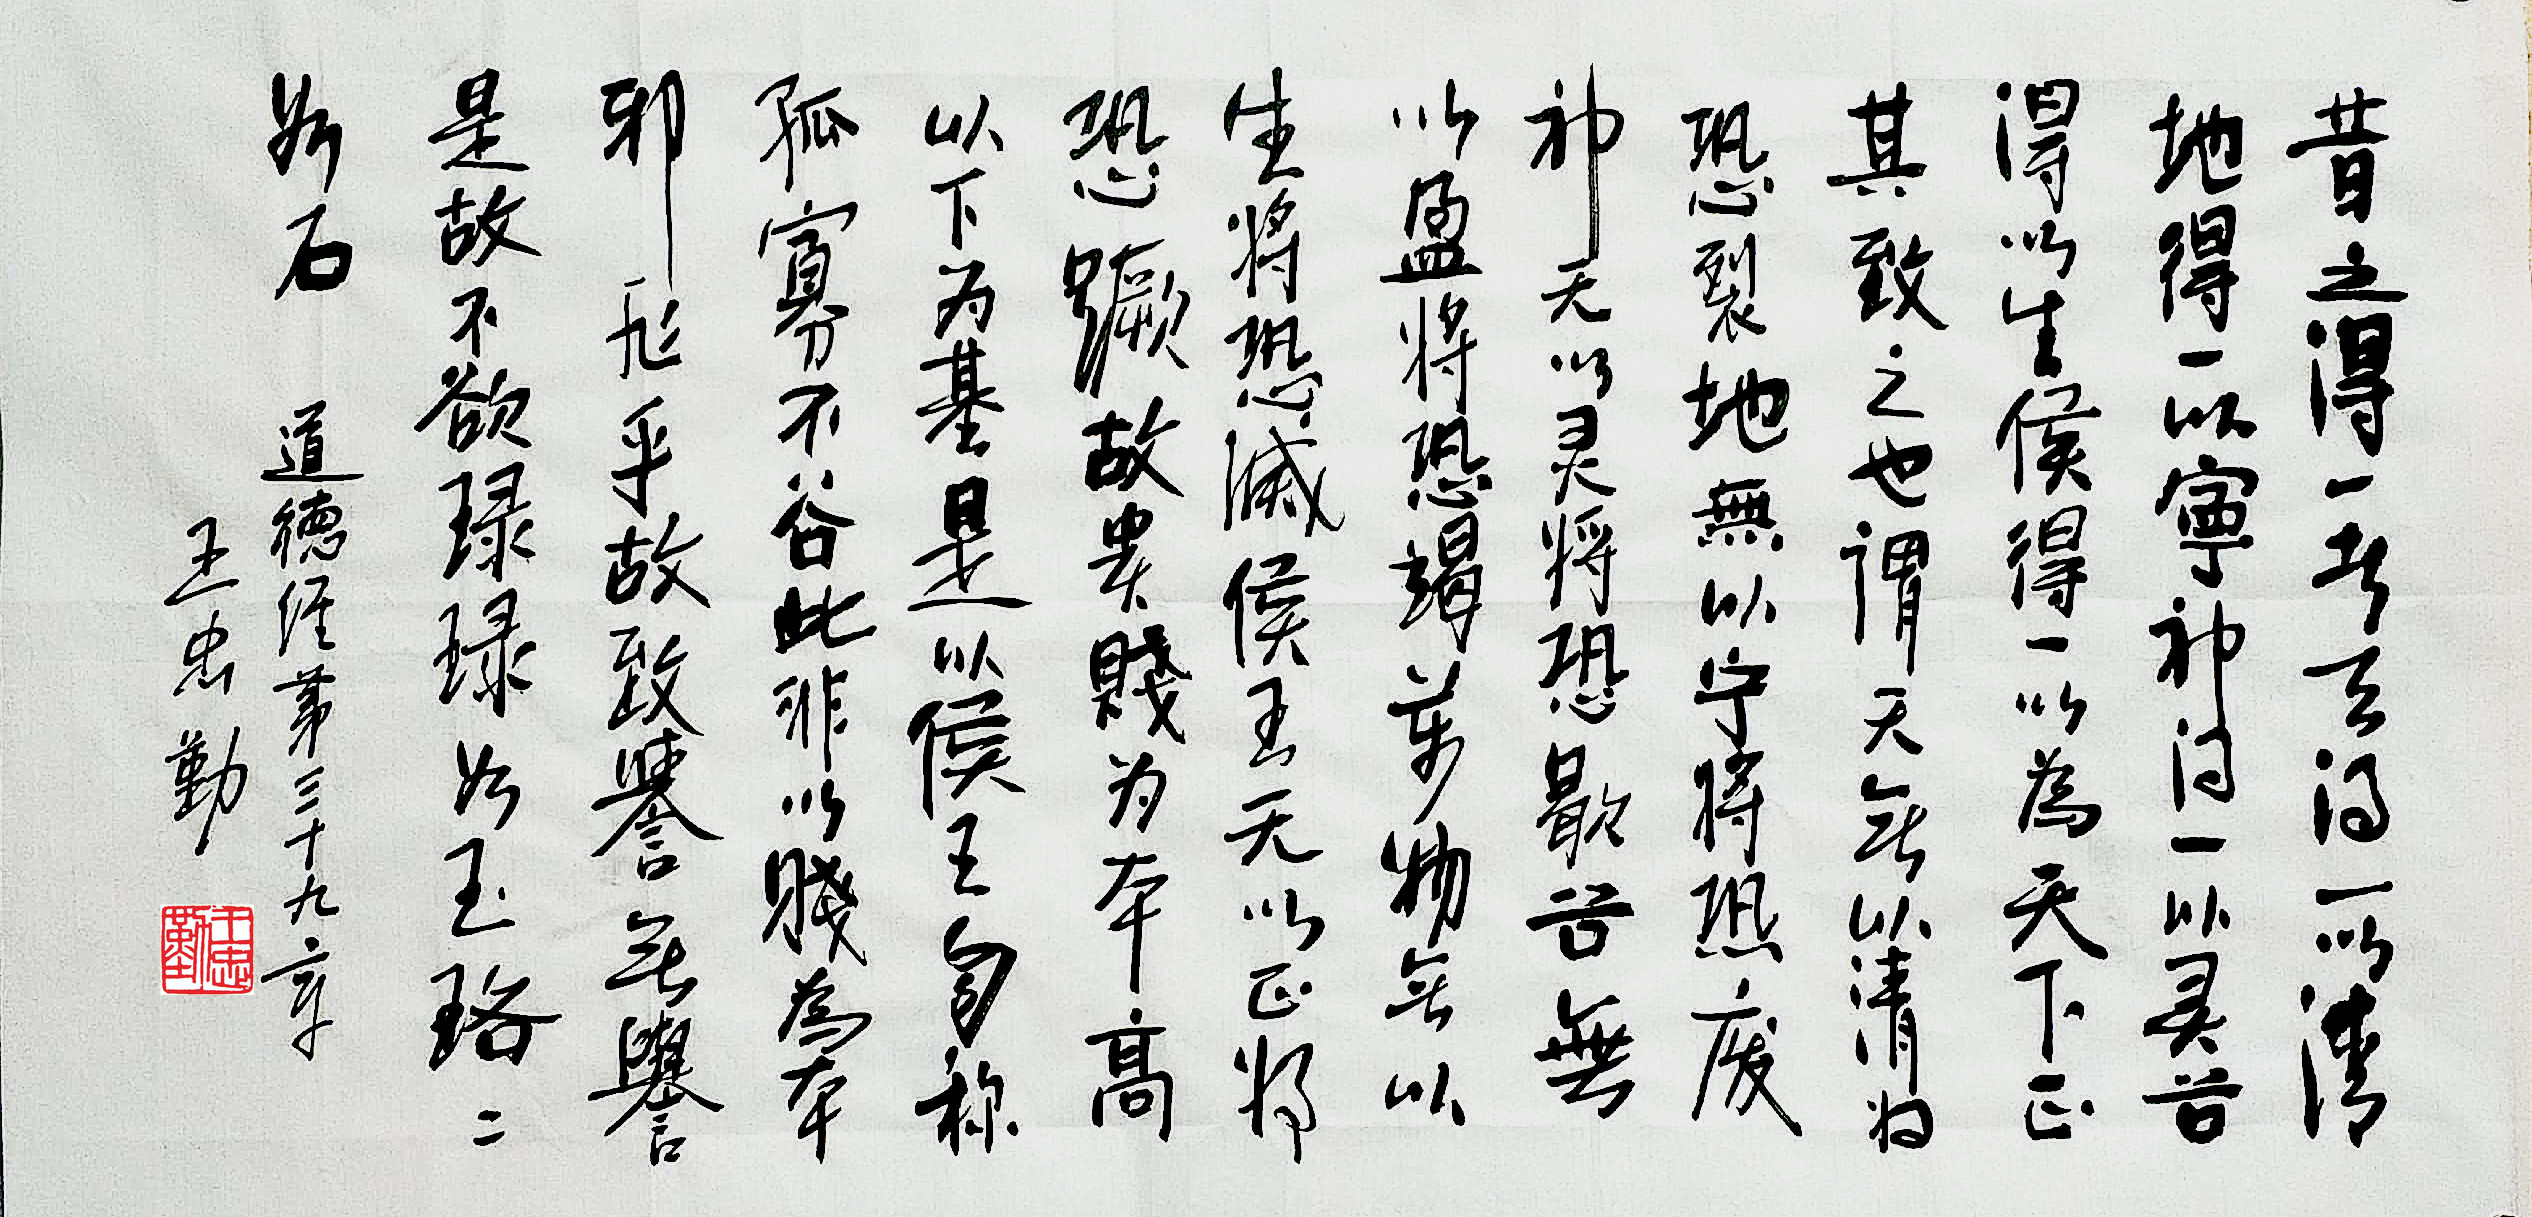 昔之得一者天得一以清
地得一以寧神得一以灵谷
得以生侯得一以為天下正
其致之也謂天無以清将
恐裂地無以宁将恐废
神无以灵将恐歇谷無
以盈将恐竭萬物無以
生将恐滅侯王无以正将
恐蹶故贵賤为本高
以下为基是以侯王自称
孤寡不谷此非以賤為本
邪非乎故致譽無譽
是故不欲琭琭如玉珞二
如石
道德经第三十九章
王忠勤
王忠勤